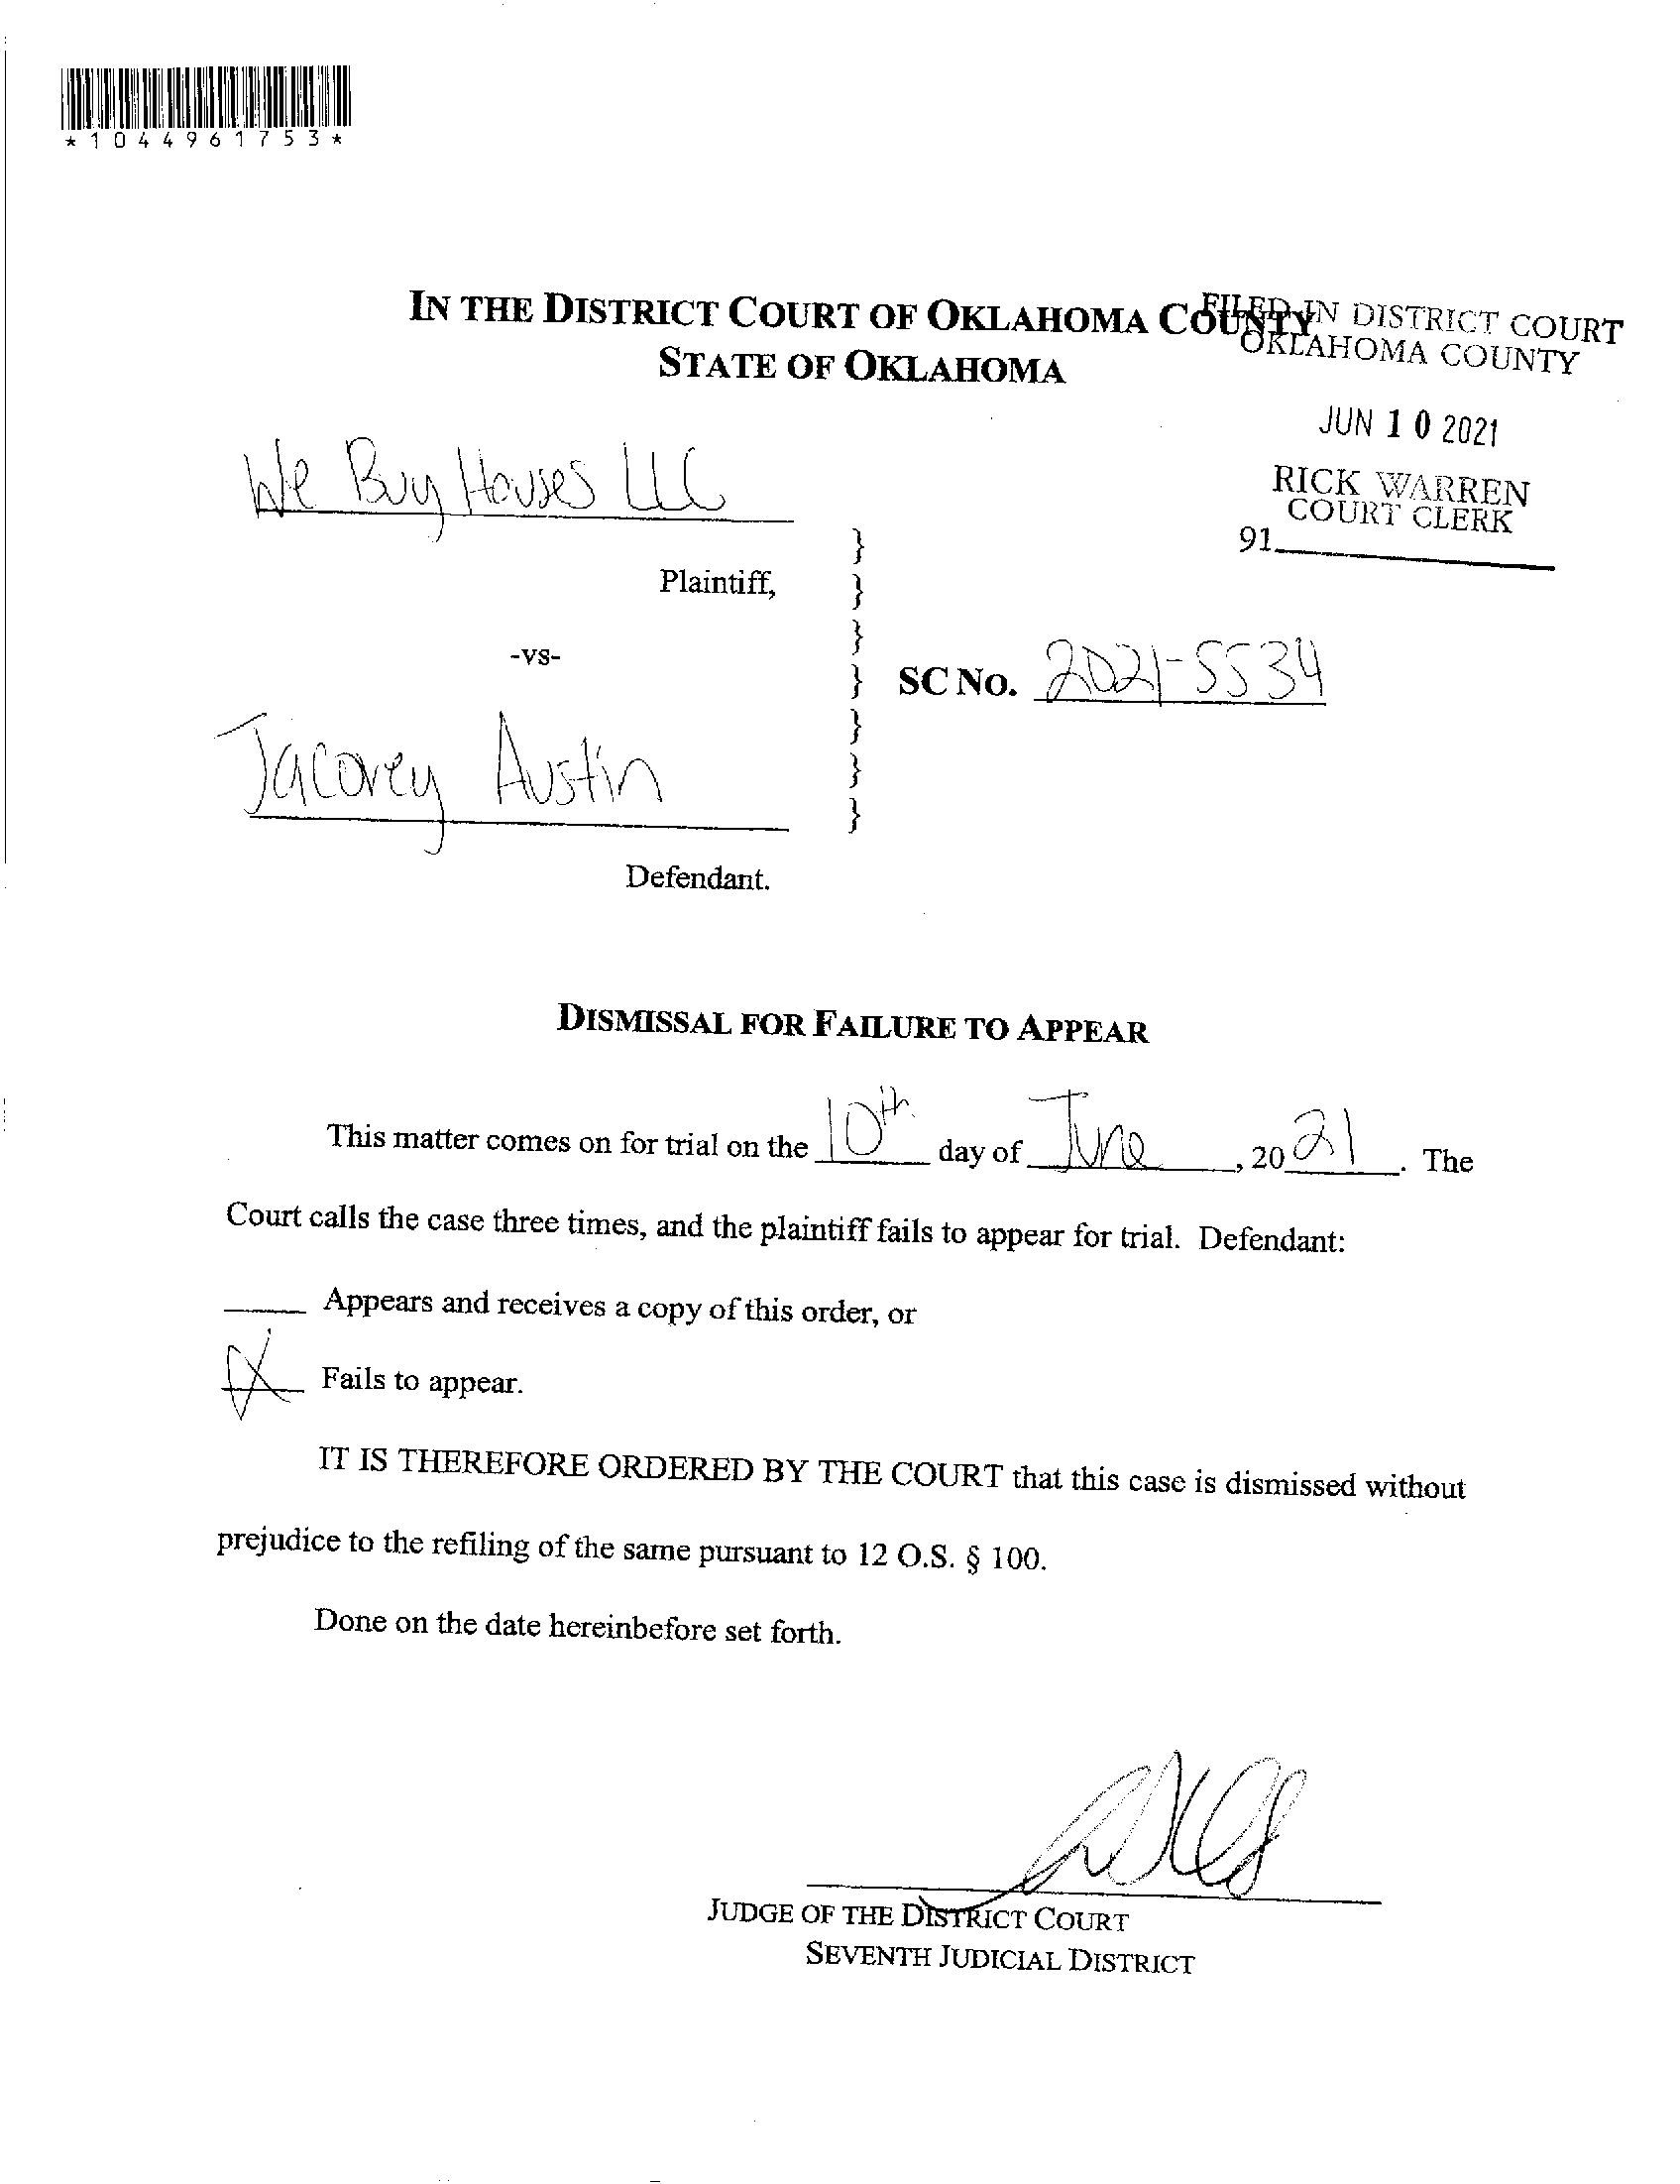 *1044961753*
IN THE DISTRICT COURT OF OKLAHOMA COUNTY
STATE OF OKLAHOMA
FILED IN DISTRICT COURT
OKLAHOMA COUNTY
JUN 10 2021
RICK WARREN
COURT CLERK
91
We Buy Houses LLC
Plaintiff,
-vs-
SC NO. 2021-5534
Jacorey Austin
Defendant.
}
}
}
}
}
}
}
DISMISSAL FOR FAILURE TO APPEAR
This matter comes on for trial on the 10th day of June, 2021. The
Court calls the case three times, and the plaintiff fails to appear for trial. Defendant:
____ Appears and receives a copy of this order, or
X Fails to appear.
IT IS THEREFORE ORDERED BY THE COURT that this case is dismissed without
prejudice to the refiling of the same pursuant to 12 O.S. § 100.
Done on the date hereinbefore set forth.
JUDGE OF THE DISTRICT COURT
SEVENTH JUDICIAL DISTRICT